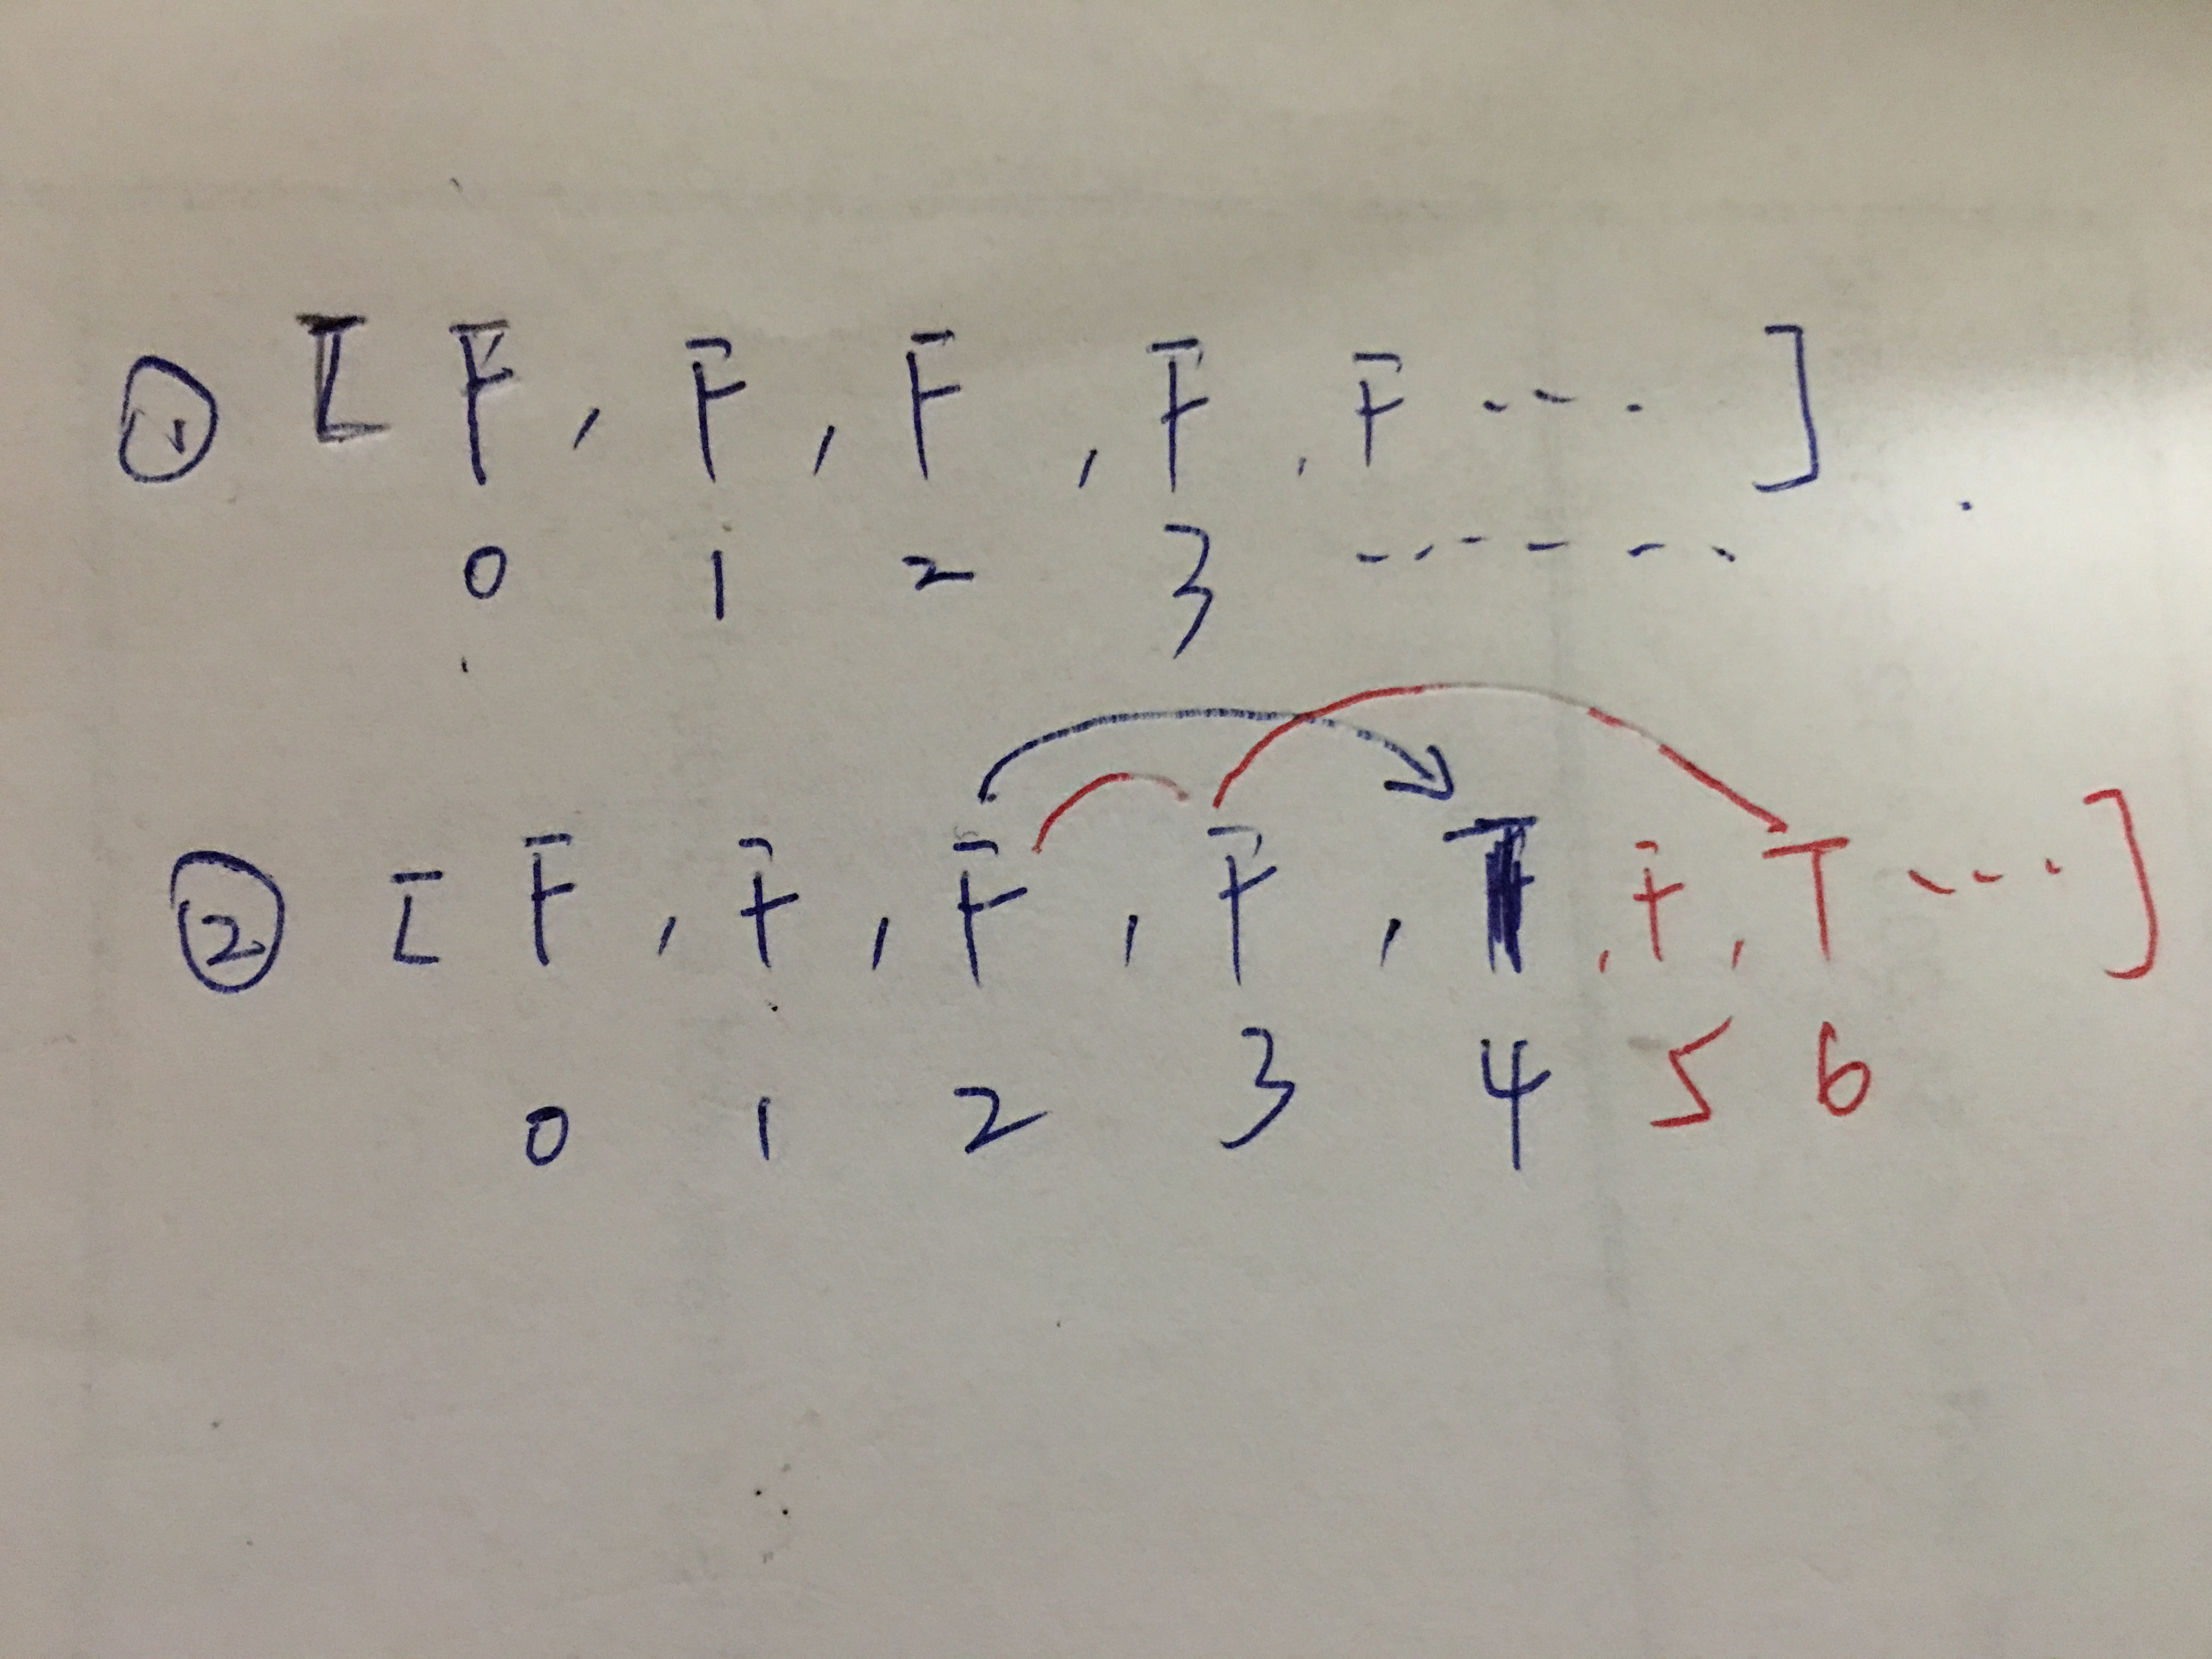 ① [F, F, F, F, F ...]
0 1 2 3 ------
② [F, F, F, F, T, F, T ...]
0 1 2 3 4 5 6